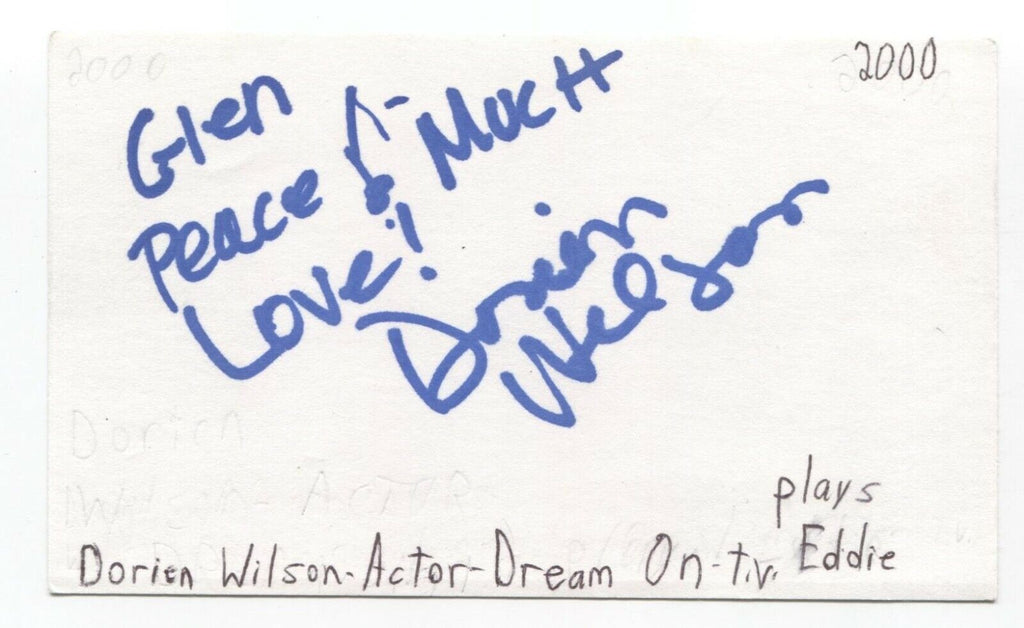 2000
2000
Glen
Peace & Much
Love!
Dorien
Wilson
Dorien
Wilson - ACTOR
plays
Dorien Wilson-Actor-Dream On-t.v. Eddie